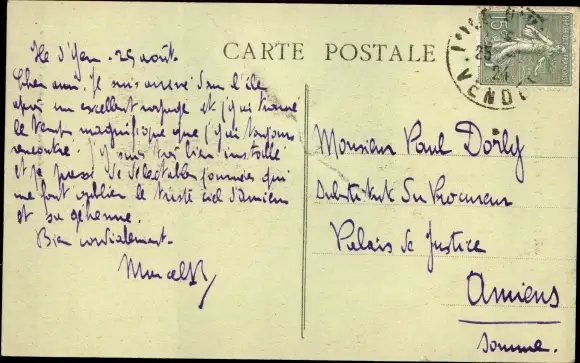 CARTE POSTALE
Ile d'Yeu. 25 août.
Cher ami. Je suis arrivé dans l'île
après un excellent voyage et j'y ai trouvé
le temps magnifique que j'y ai toujours
rencontré. J'y suis très bien installé
et je passe de délectables journées qui
me font oublier le triste ciel d'Amiens
et sa géhenne.
Bien cordialement.
Marcel
Monsieur Paul Dorly
Substitut du Procureur
Palais de Justice
Amiens
Somme.
15c
25
24
VENDÉE